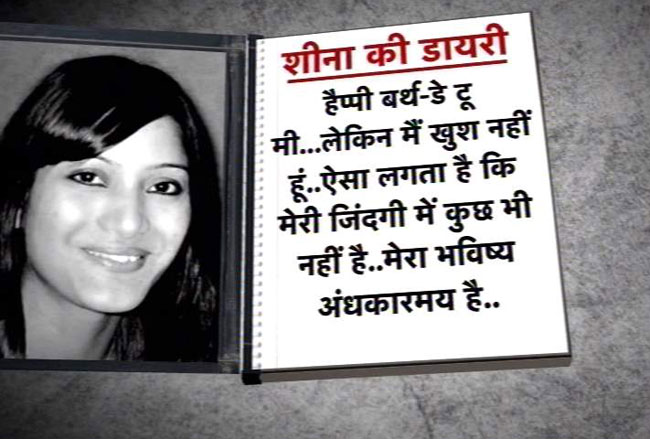 शीना की डायरी
हैप्पी बर्थ-डे टू
मी...लेकिन मैं खुश नहीं
हूं..ऐसा लगता है कि
मेरी जिंदगी में कुछ भी
नहीं है..मेरा भविष्य
अंधकारमय है..